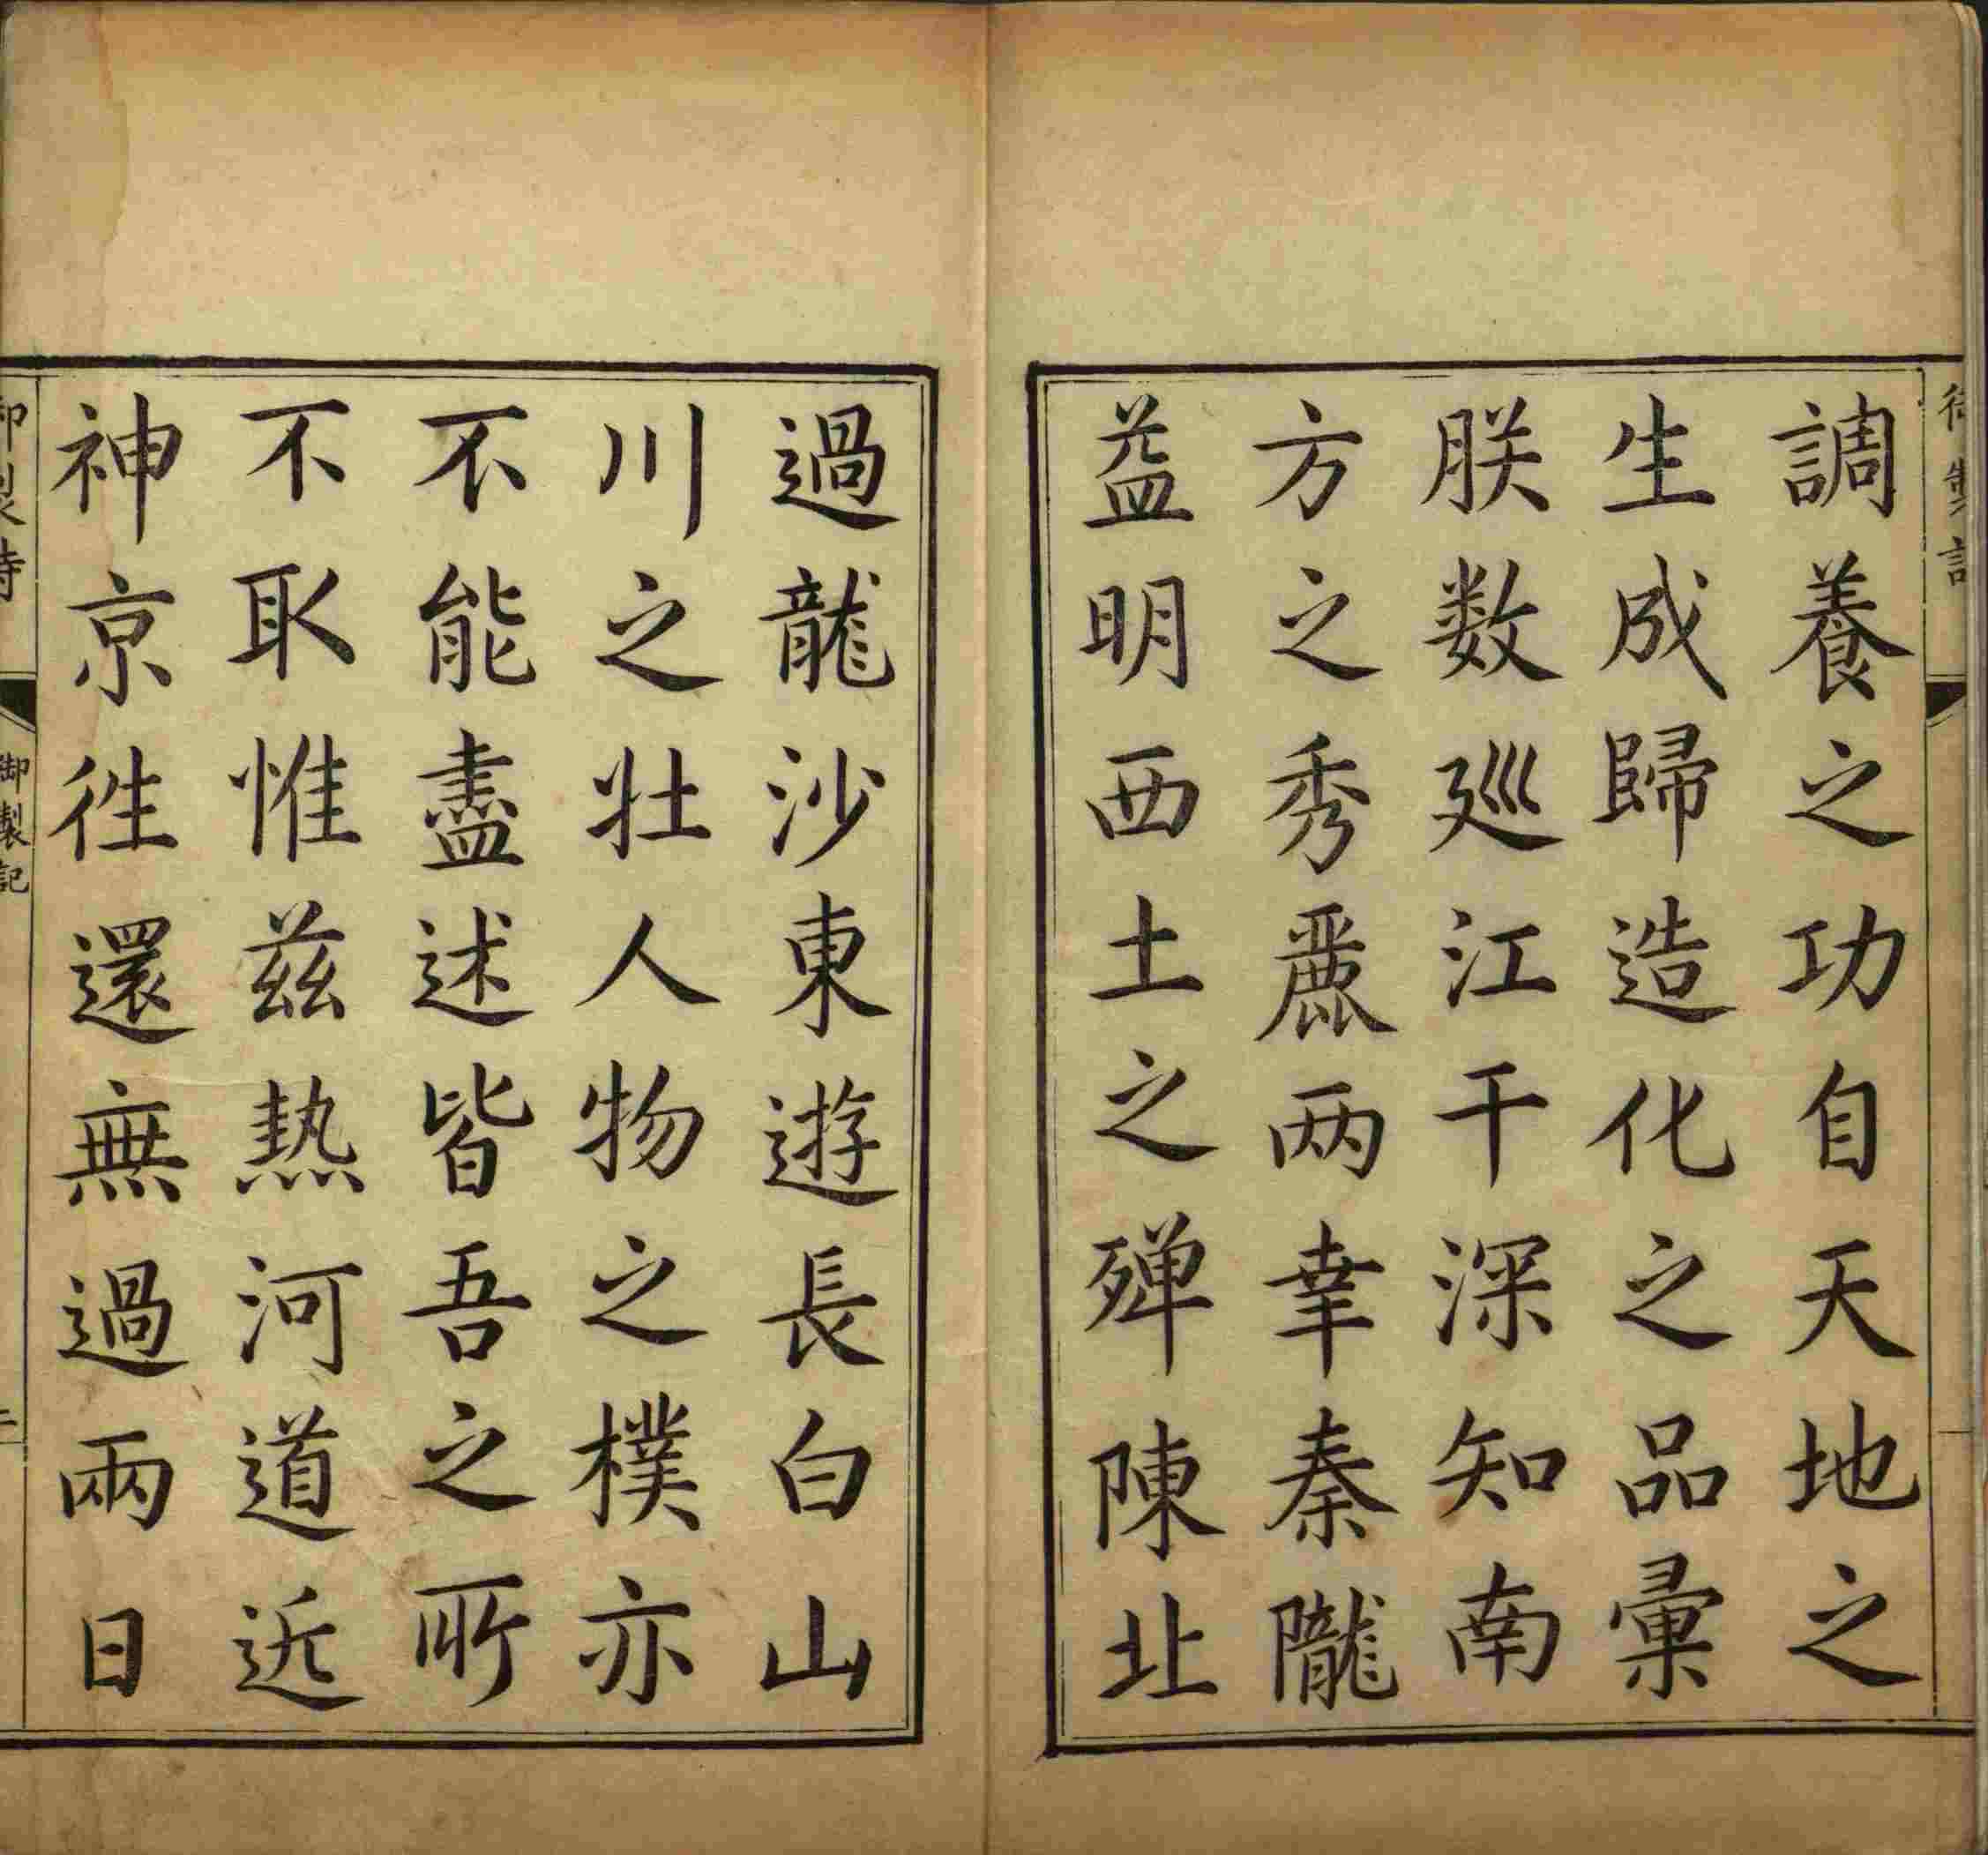 調養之功自天地之
生成歸造化之品彙
朕数廵江干深知南
方之秀麗两幸秦隴
益明西土之殫陳北
過龍沙東遊長白山
川之壯人物之樸亦
不能盡述皆吾之所
不取惟茲熱河道近
神京徃還無過兩日
御製詩
御製記